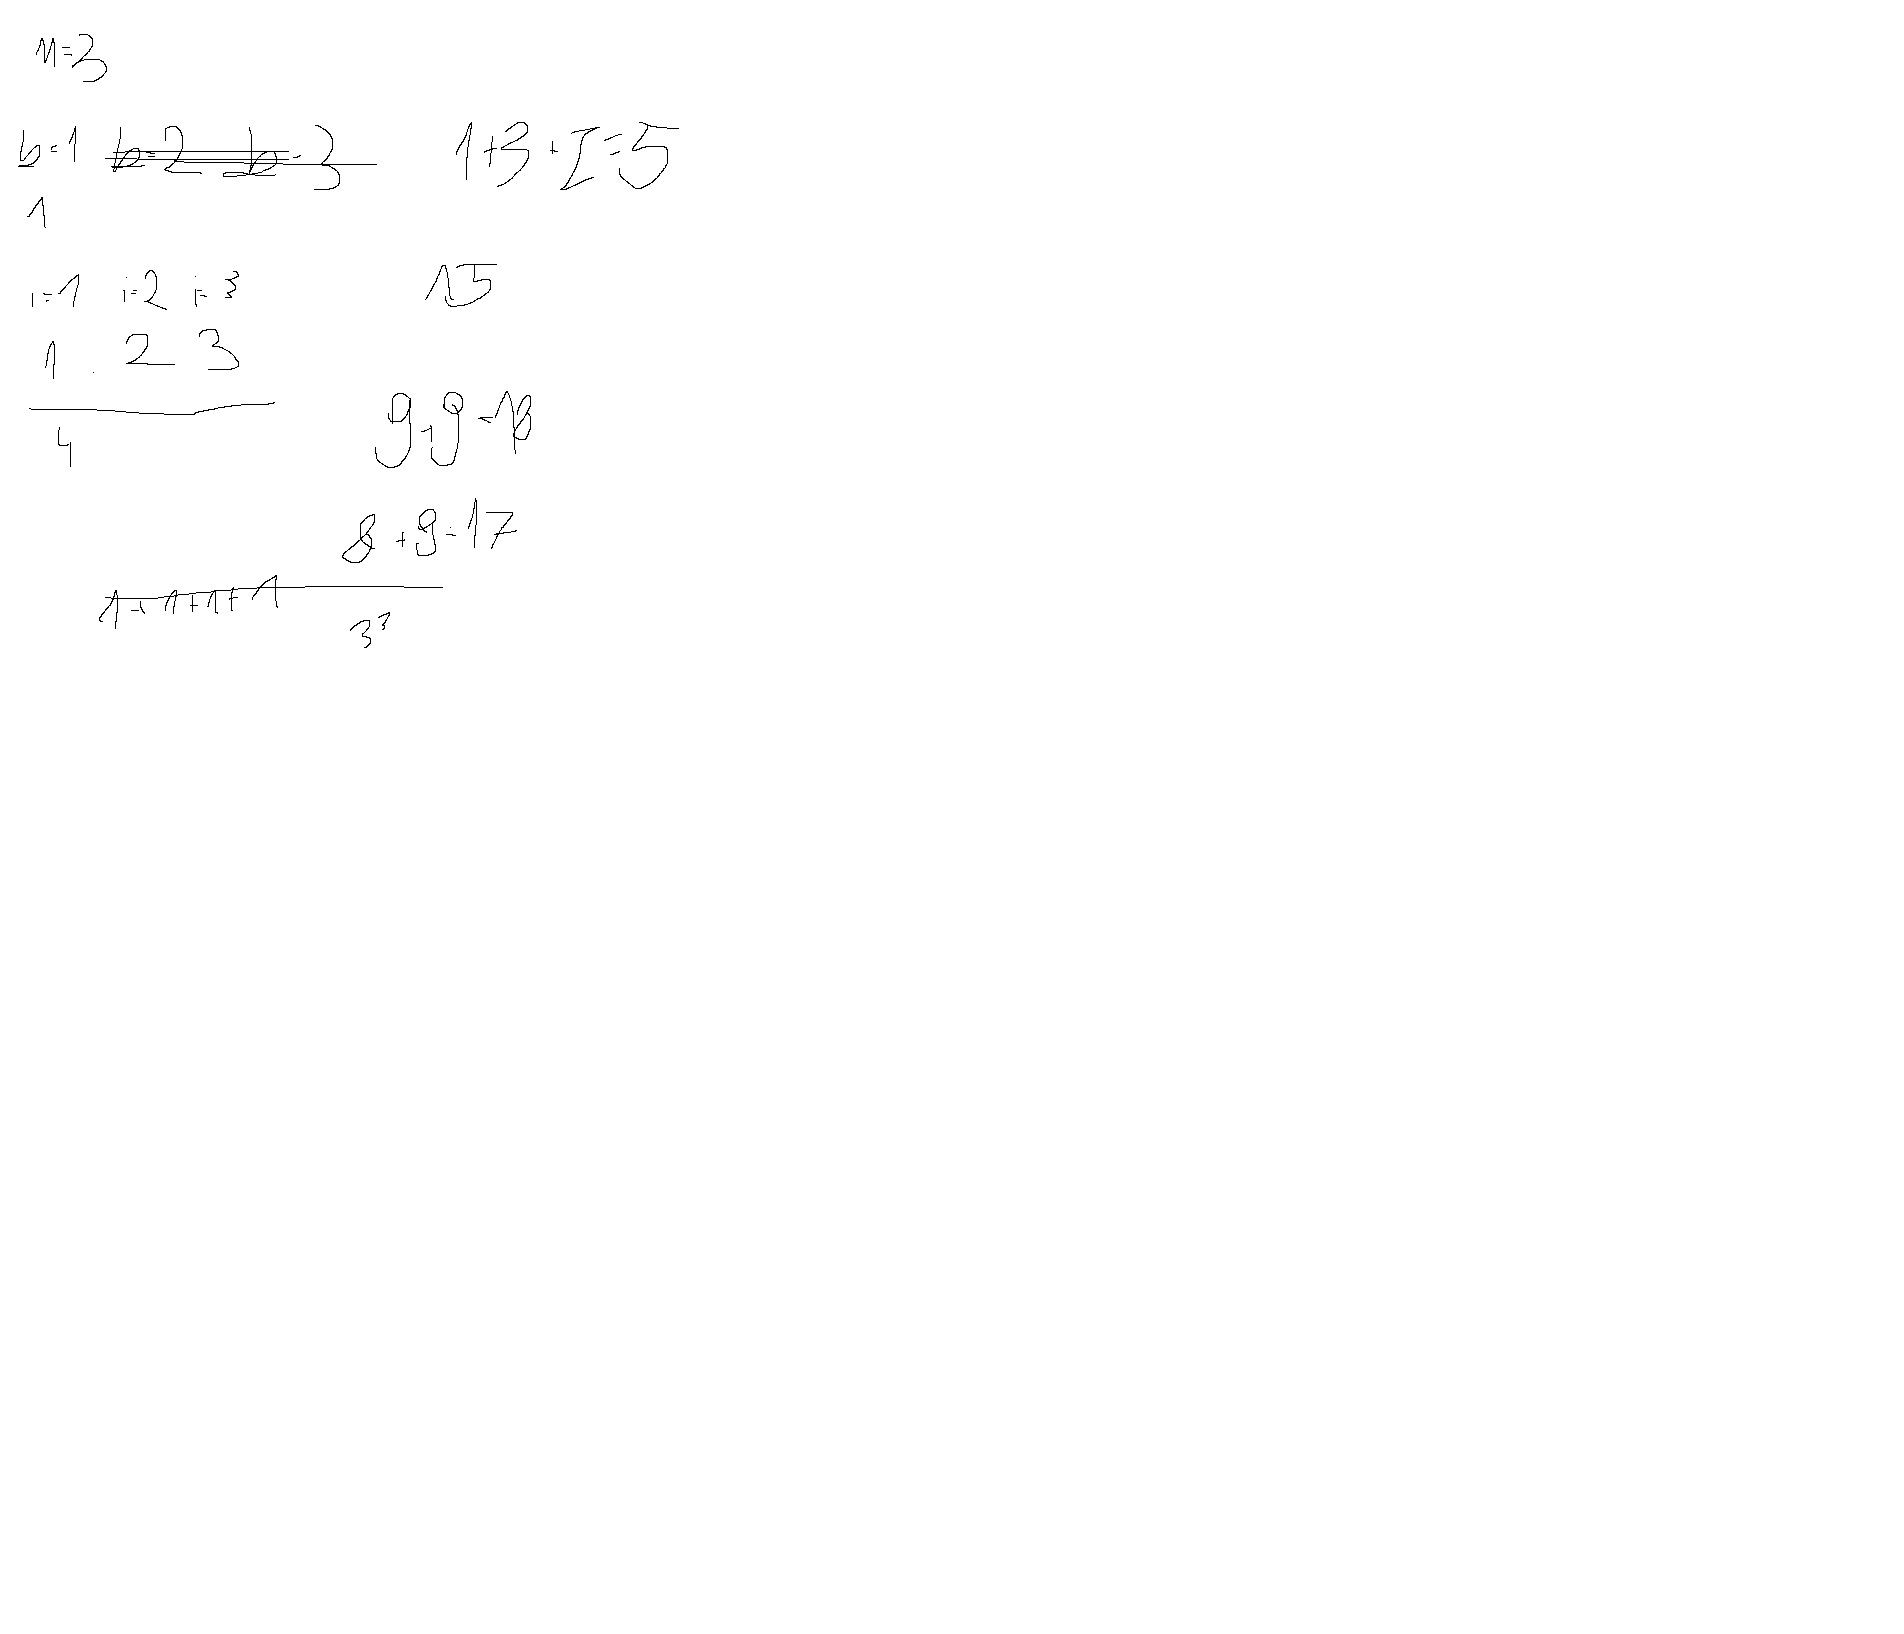 n=3
b=1 b=2 b=3 1+3+I=5
1
i=1 i=2 i=3 15
1 . 2 3
4
9+9=18
8+9=17
1+1+1+1
3³